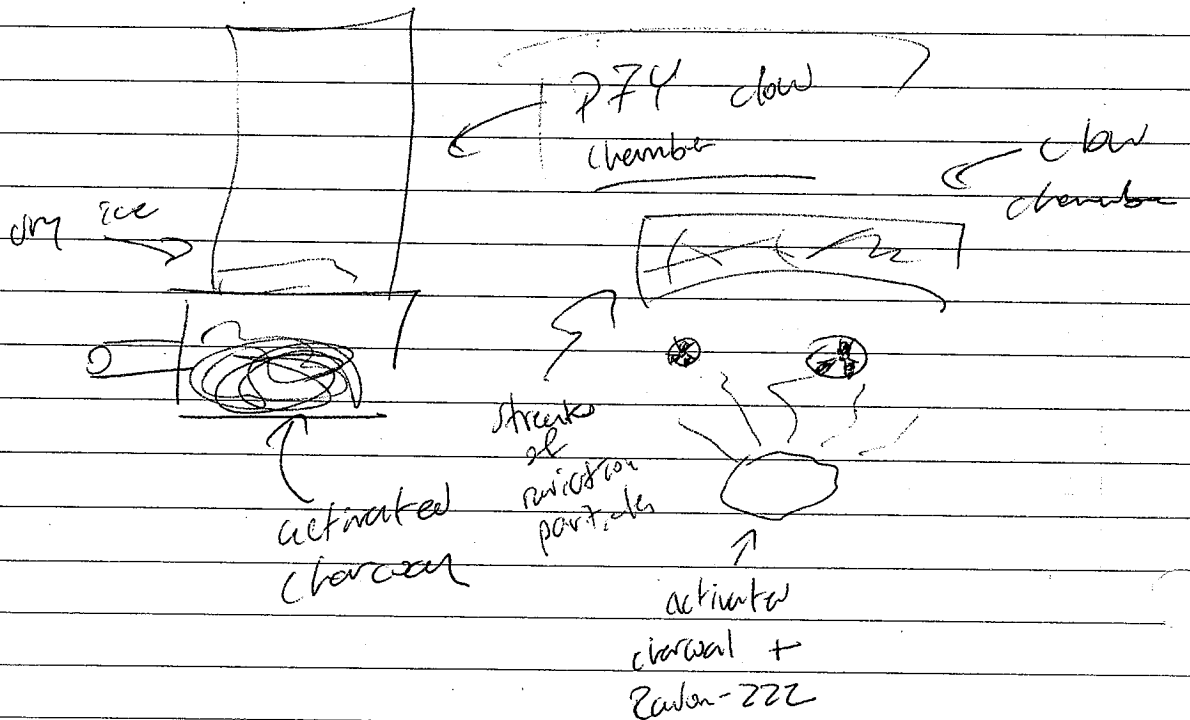 P74 clow
chamber
clow
chamber
dry ice
streaks
of
particles
activated
charcoal
activated
charcoal +
Radon-222